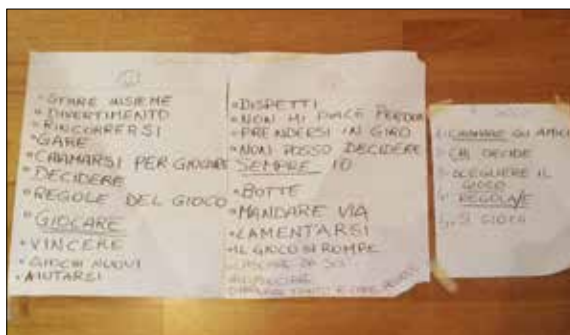 • STARE INSIEME
• DIVERTIMENTO
• RINCORRERSI
• GARE
• CHIAMARSI PER GIOCARE
• DECIDERE
• REGOLE DEL GIOCO
• GIOCARE
• VINCERE
• GIOCHI NUOVI
• AIUTARSI
• DISPETTI
• NON MI PIACE PERDERE
• PRENDERSI IN GIRO
• NON POSSO DECIDERE
SEMPRE IO
• BOTTE
• MANDARE VIA
• LAMENTARSI
• IL GIOCO SI ROMPE
DA SOLI
CHIAMARE GLI AMICI
CHI DECIDE
SCEGLIERE IL
GIOCO
REGOLA/E
SI GIOCA